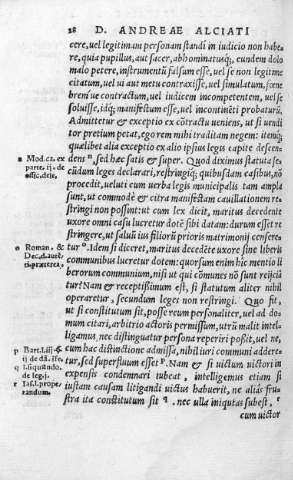 28 D. ANDREAE ALCIATI
cere, uel legitimam personam standi in iudicio non habe
re, quia pupillus, aut sacer, abhominatusq́;, eundem dolo
malo petere, instrumentū falsum esse, uel se non legitime
citatum, uel ui aut metu contraxisse, uel simulatum, fœne
breḿue contractum, uel iudicem incompetentem, uel se
soluisse, idq́; manifestum esse, uel incontinēti probaturū.
Admittetur & exceptio ex cōtractu ueniens, ut si uendi
tor pretium petat, ego rem mihi traditam negem: itemq́;
qualibet alia exceptio ex alio ipsius legis capite descen
n Mod. ca. ex
parte. ij. de
offic. dele.
dens n, sed hæc satis & super. Quod diximus statuta se-
cūdum leges declarari, restringiq́; quibusdam casibus, nō
procedit, ueluti cum uerba legis municipalis tam ampla
sunt, ut commodè & citra manifestam cauillationem re
stringi non possint: ut cum lex dicit, maritus decedente
uxore omni casu lucretur dotē sibi datam: durum esset re
stringere, ut saluū ius filiorū prioris matrimonij censere-
o Roman. &
Dec. d. aucē.
præterea,
tur o. Idem si diceret, maritus decedēte uxore sine liberis
communibus lucretur dotem: quorsum enim hic mentio li
berorum communium, nisi ut qui cōmunes nō sunt reijciā
tur? Nam & receptissimum est, si statutum aliter nihil
operaretur, secundum leges non restringi. Quo fit,
ut si constitutum sit, posse reum personaliter, uel ad do-
mum citari, arbitrio actoris permissum, utrū malit intelli-
gamus, nec distinguatur persona reperiri possit, uel ne,
p Bart. l. iij. §
ti. de dā. ifo.
cum hac distinctione admissa, nihil iuri communi addere
q l. siquando.
de leg. j.
tur, sed superfluum esset p. Nam & si uictum uictori in
expensis condemnari iubeat, intelligemus etiam si
r Ias. l. prope
randum.
iustam causam litigandi uictus habuerit, ne aliàs fru-
stra ita constitutum sit q. nec ulla iniquitas subest, r
cum uictor